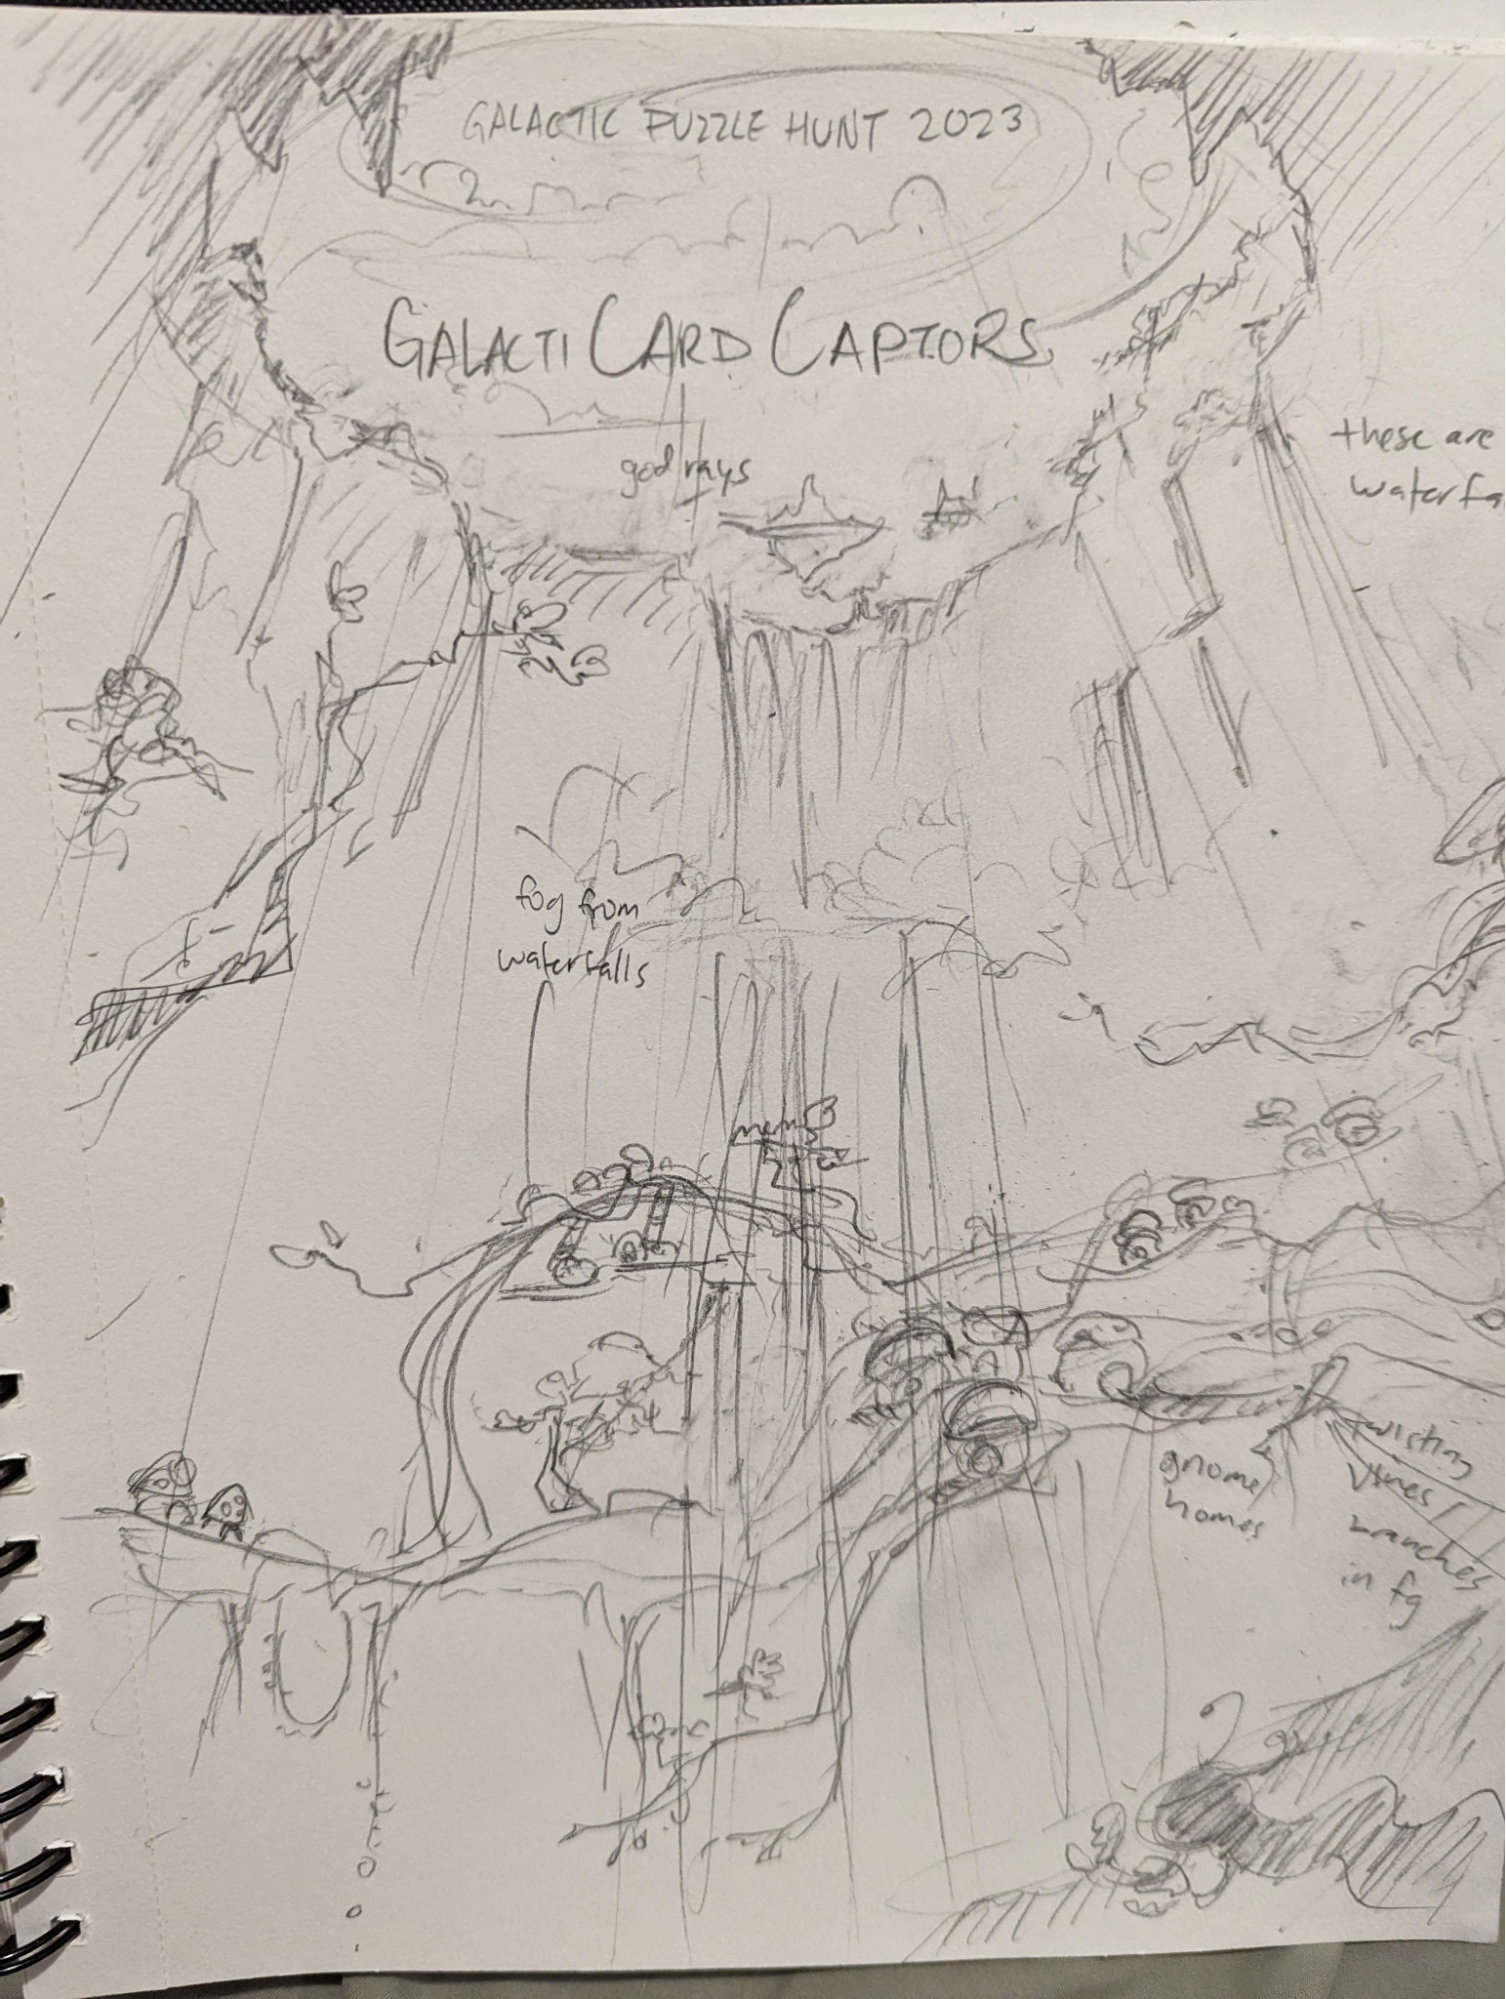 GALACTIC PUZZLE HUNT 2023
GALACTI CARD CAPTORS
god rays
these are
waterfa
fog from
waterfalls
gnome
homes
twisting
vines /
branches
in fg